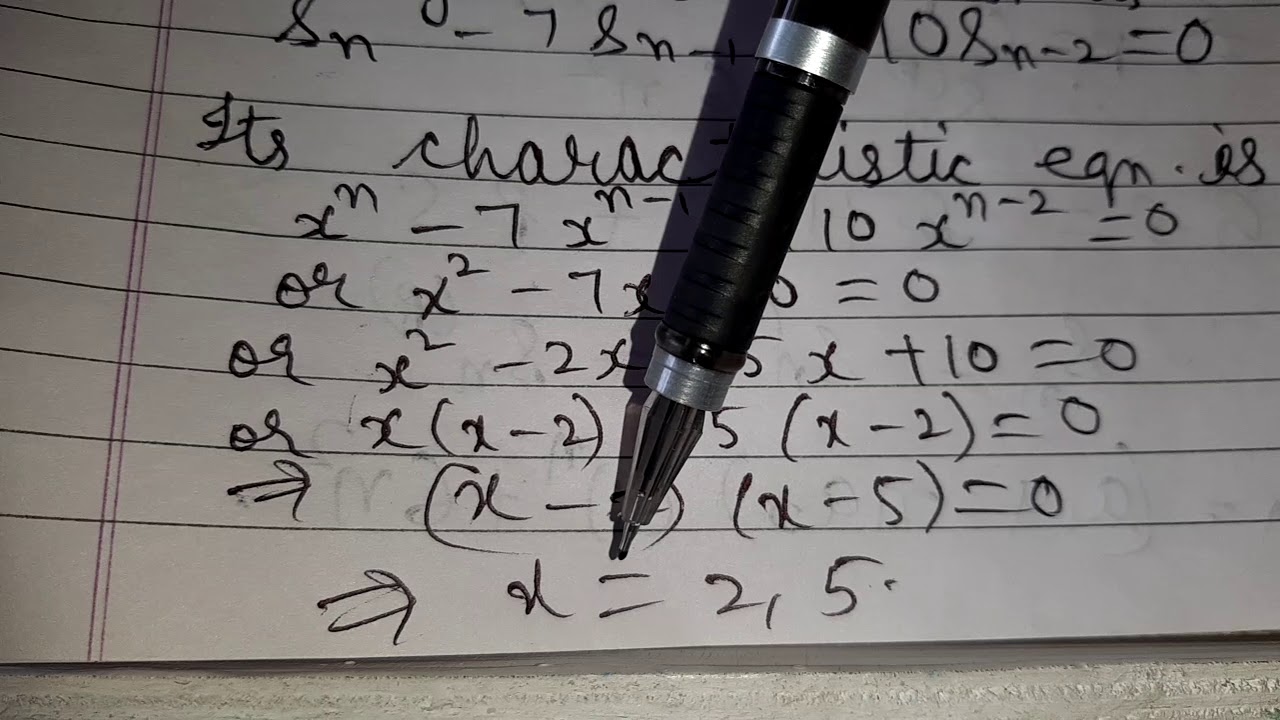 Sn - 7 Sn-1 10Sn-2 = 0
Its charact istic eqn. is
xⁿ - 7 xⁿ⁻¹ 10 xⁿ⁻² = 0
or x² - 7x 0 = 0
or x² - 2x 5 x + 10 = 0
or x(x-2) 5 (x-2) = 0
⇒ (x - ) (x-5) = 0
⇒ x = 2, 5.